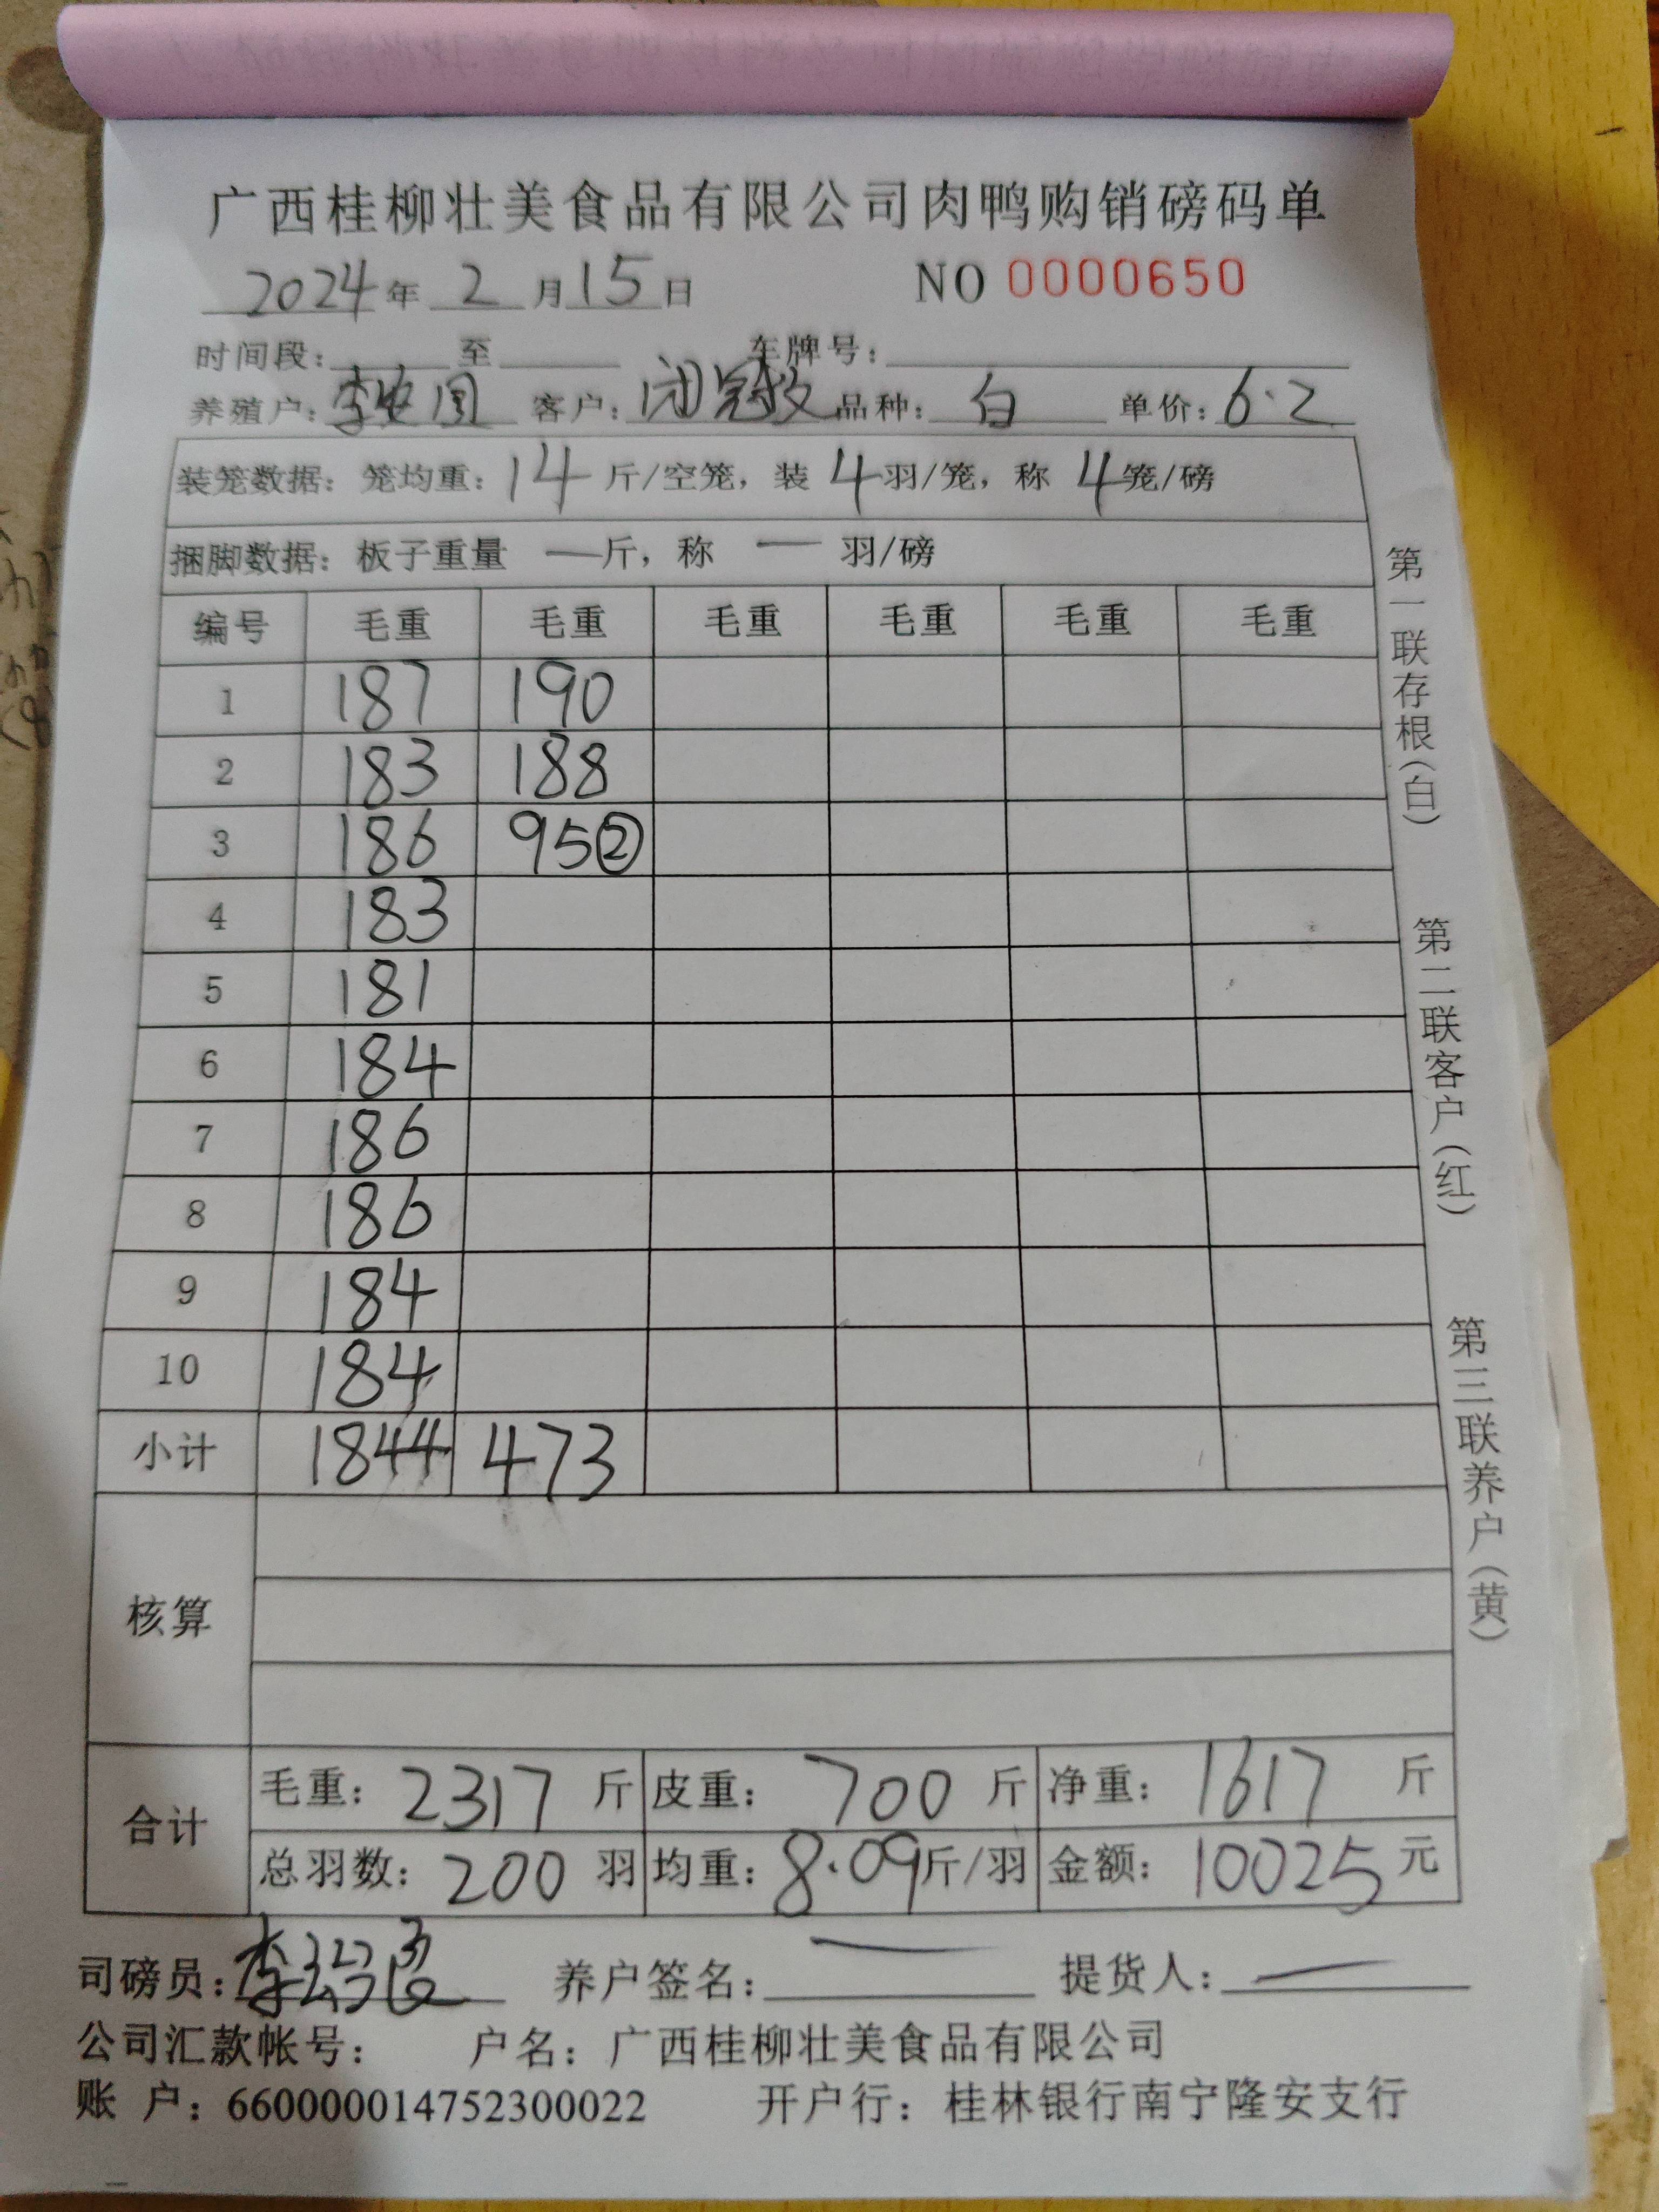 广西桂柳壮美食品有限公司肉鸭购销磅码单
2024年 2 月 15 日 NO 0000650
时间段: 至 车牌号:
养殖户: 李 客户: 闭冠 品种: 白 单价: 6.2
装笼数据: 笼均重: 14 斤/空笼, 装 4 羽/笼, 称 4 笼/磅
捆脚数据: 板子重量 — 斤, 称 — 羽/磅
编号 毛重 毛重 毛重 毛重 毛重 毛重
1 187 190
2 183 188
3 186 95②
4 183
5 181
6 184
7 186
8 186
9 184
10 184
小计 1844 473
核算
合计
毛重: 2317 斤 皮重: 700 斤 净重: 1617 斤
总羽数: 200 羽 均重: 8.09 斤/羽 金额: 10025 元
司磅员: 李 养户签名: — 提货人: —
公司汇款帐号: 户名: 广西桂柳壮美食品有限公司
账 户: 660000014752300022 开户行: 桂林银行南宁隆安支行
第一联存根(白)
第二联客户(红)
第三联养户(黄)